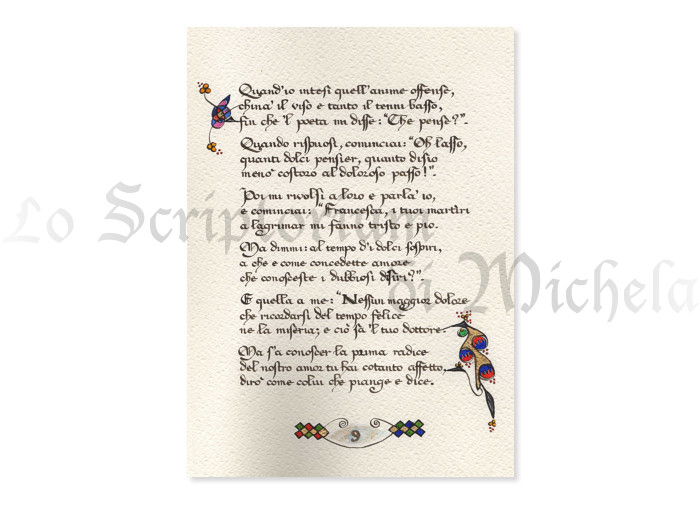 Quand'io intesi quell'anime offense,
china' il viso e tanto il tenni basso,
fin che 'l poeta mi disse: "Che pense?".
Quando rispuosi, cominciai: "Oh lasso,
quanti dolci pensier, quanto disio
menò costoro al doloroso passo!".
Poi mi rivolsi a loro e parla' io,
e cominciai: "Francesca, i tuoi martìri
a lagrimar mi fanno tristo e pio.
Ma dimmi: al tempo d'i dolci sospiri,
a che e come concedette amore
che conosceste i dubbiosi disiri?".
E quella a me: "Nessun maggior dolore
che ricordarsi del tempo felice
ne la miseria; e ciò sa 'l tuo dottore.
Ma s'a conoscer la prima radice
del nostro amor tu hai cotanto affetto,
dirò come colui che piange e dice.
9
Lo Scriptorium
di Michela